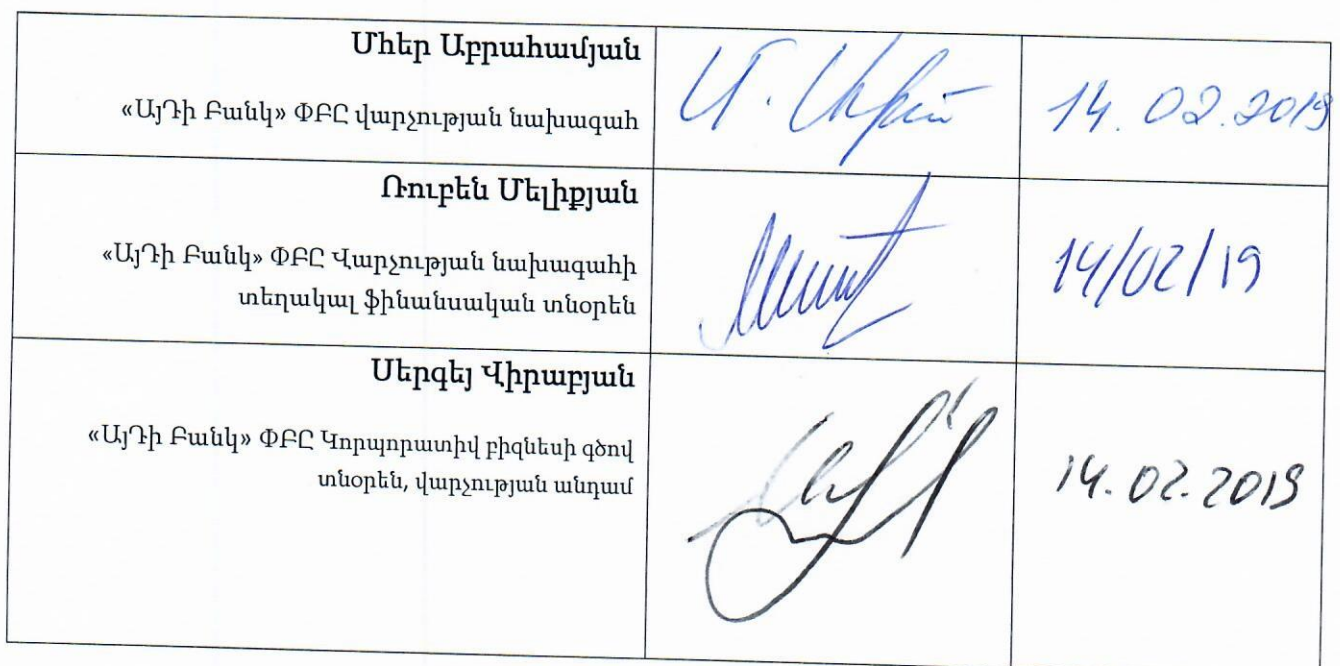 Մհեր Աբրահամյան
«ԱյԴի Բանկ» ՓԲԸ վարչության նախագահ
14.02.2019
Ռուբեն Մելիքյան
«ԱյԴի Բանկ» ՓԲԸ Վարչության նախագահի
տեղակալ ֆինանսական տնօրեն
14/02/19
Սերգեյ Վիրաբյան
«ԱյԴի Բանկ» ՓԲԸ Կորպորատիվ բիզնեսի գծով
տնօրեն, վարչության անդամ
14.02.2019